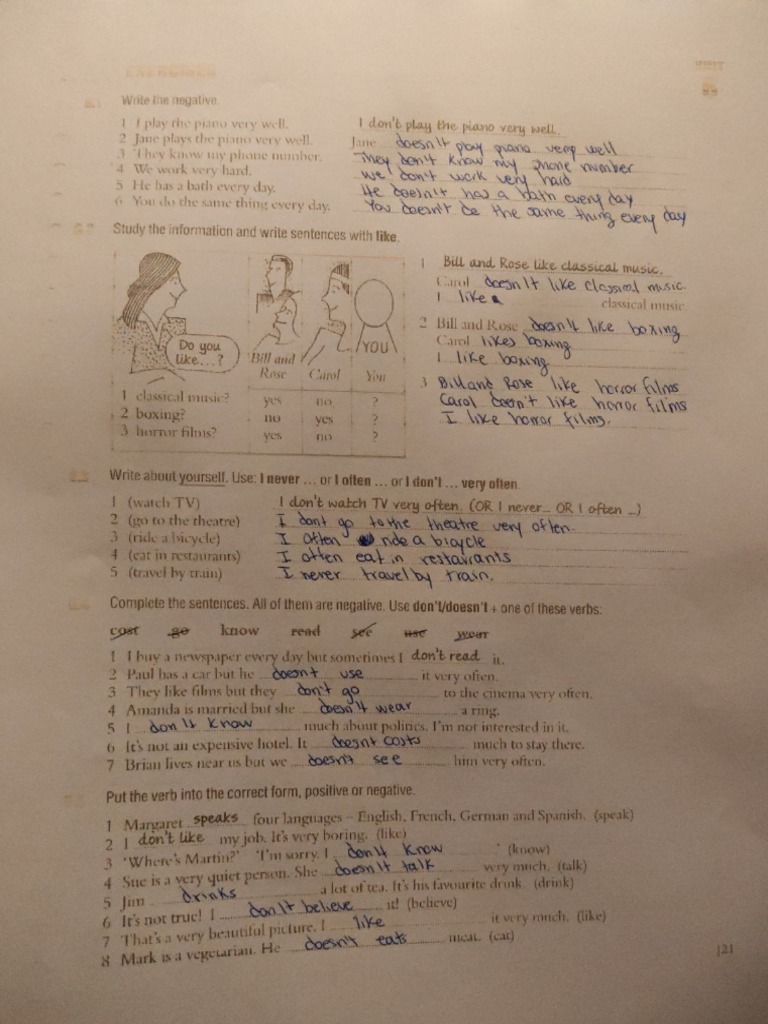 Write the negative.
1 I play the piano very well. I don't play the piano very well.
2 Jane plays the piano very well. Jane doesn't play piano very well
3 They know my phone number. They don't know my phone number
4 We work very hard. We don't work very hard
5 He has a bath every day. He doesn't has a bath every day
6 You do the same thing every day. You doesn't do the same thing every day
Study the information and write sentences with like.
Do you like...?
Bill and Rose Carol You
YOU
1 classical music? yes no ?
2 boxing? no yes ?
3 horror films? yes no ?
1 Bill and Rose like classical music.
Carol doesn't like classical music.
I like classical music.
2 Bill and Rose doesn't like boxing
Carol likes boxing
I like boxing.
3 Bill and Rose like horror films
Carol doesn't like horror films
I like horror films.
Write about yourself. Use: I never ... or I often ... or I don't ... very often.
1 (watch TV) I don't watch TV very often. (OR I never... OR I often ...)
2 (go to the theatre) I dont go to the theatre very often.
3 (ride a bicycle) I often ride a bicycle
4 (eat in restaurants) I often eat in restaurants
5 (travel by train) I never travel by train.
Complete the sentences. All of them are negative. Use don't/doesn't + one of these verbs:
cost go know read see use wear
1 I buy a newspaper every day but sometimes I don't read it.
2 Paul has a car but he doesnt use it very often.
3 They like films but they don't go to the cinema very often.
4 Amanda is married but she doesn't wear a ring.
5 I don't know much about politics. I'm not interested in it.
6 It's not an expensive hotel. It doesnt costs much to stay there.
7 Brian lives near us but we doesn't see him very often.
Put the verb into the correct form, positive or negative.
1 Margaret speaks four languages – English, French, German and Spanish. (speak)
2 I don't like my job. It's very boring. (like)
3 'Where's Martin?' 'I'm sorry. I don't know .' (know)
4 Sue is a very quiet person. She doesn't talk very much. (talk)
5 Jim drinks a lot of tea. It's his favourite drink. (drink)
6 It's not true! I don't believe it! (believe)
7 That's a very beautiful picture. I like it very much. (like)
8 Mark is a vegetarian. He doesn't eats meat. (eat)
121